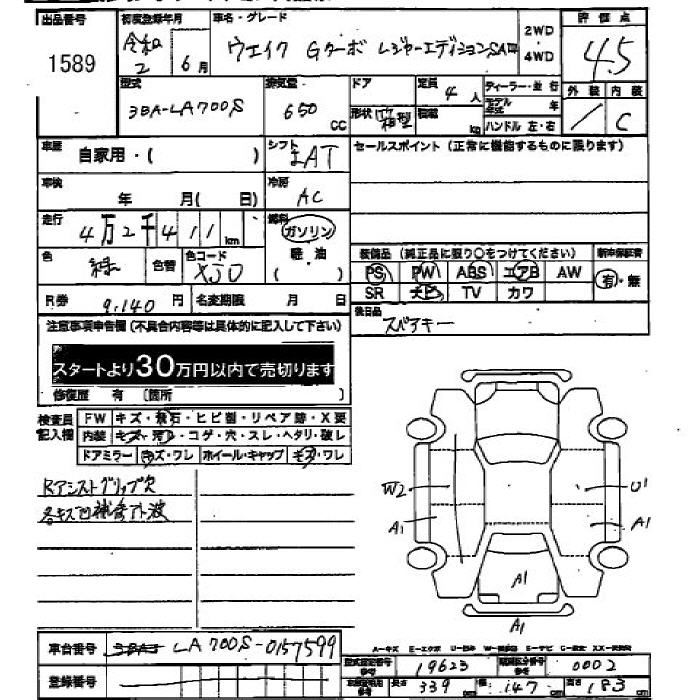 出品番号 初度登録年月 車名・グレード 評価点
1589 令和2 6月 ウェイク Gターボ レジャーエディションSAⅢ 2WD ・ 4WD 4.5
型式 3BA-LA700S 排気量 650 CC ドア 定員 4人 ディーラー・並行 外装 内装
形状 箱型 積載 kg モデル年式 年 ハンドル 左・右 / C
車歴 自家用・( ) シフト AT セールスポイント (正常に機能するものに限ります)
車検 年 月( 日) 冷房 AC
走行 4万2千411km 燃料 ガソリン 軽油 ( )
色 緑 色替 色コード XJ0 装備品 (純正品に限り〇をつけてください) 新車保証書
PS PW ABS エアB AW 有・無
SR ナビ TV カワ
R券 9,140円 名変期限 月 日
後日品 スペアキー
注意事項申告欄 (不具合内容等は具体的に記入して下さい)
スタートより30万円以内で売切ります
修復歴 有 〔箇所 〕
検査員記入欄 FW キズ・飛石・ヒビ割・リペア跡・X要
内装 キズ・汚レ・コゲ・穴・スレ・ヘタリ・破レ
ドアミラー キズ・ワレ ホイール・キャップ キズ・ワレ
Rアシストグリップ欠
各キズ凹補修アト波
W2 U1
A1 A1
A1
A1
車台番号 3BA- LA700S-0157599
登録番号
A-キズ E-エクボ U-凹み W-補修跡 S-サビ C-腐食 XX-交換済
型式指定番号 参考 19623 類別区分番号 参考 0002
車検証寸法 参考 長さ 339 cm 幅 147 cm 高さ 183 cm